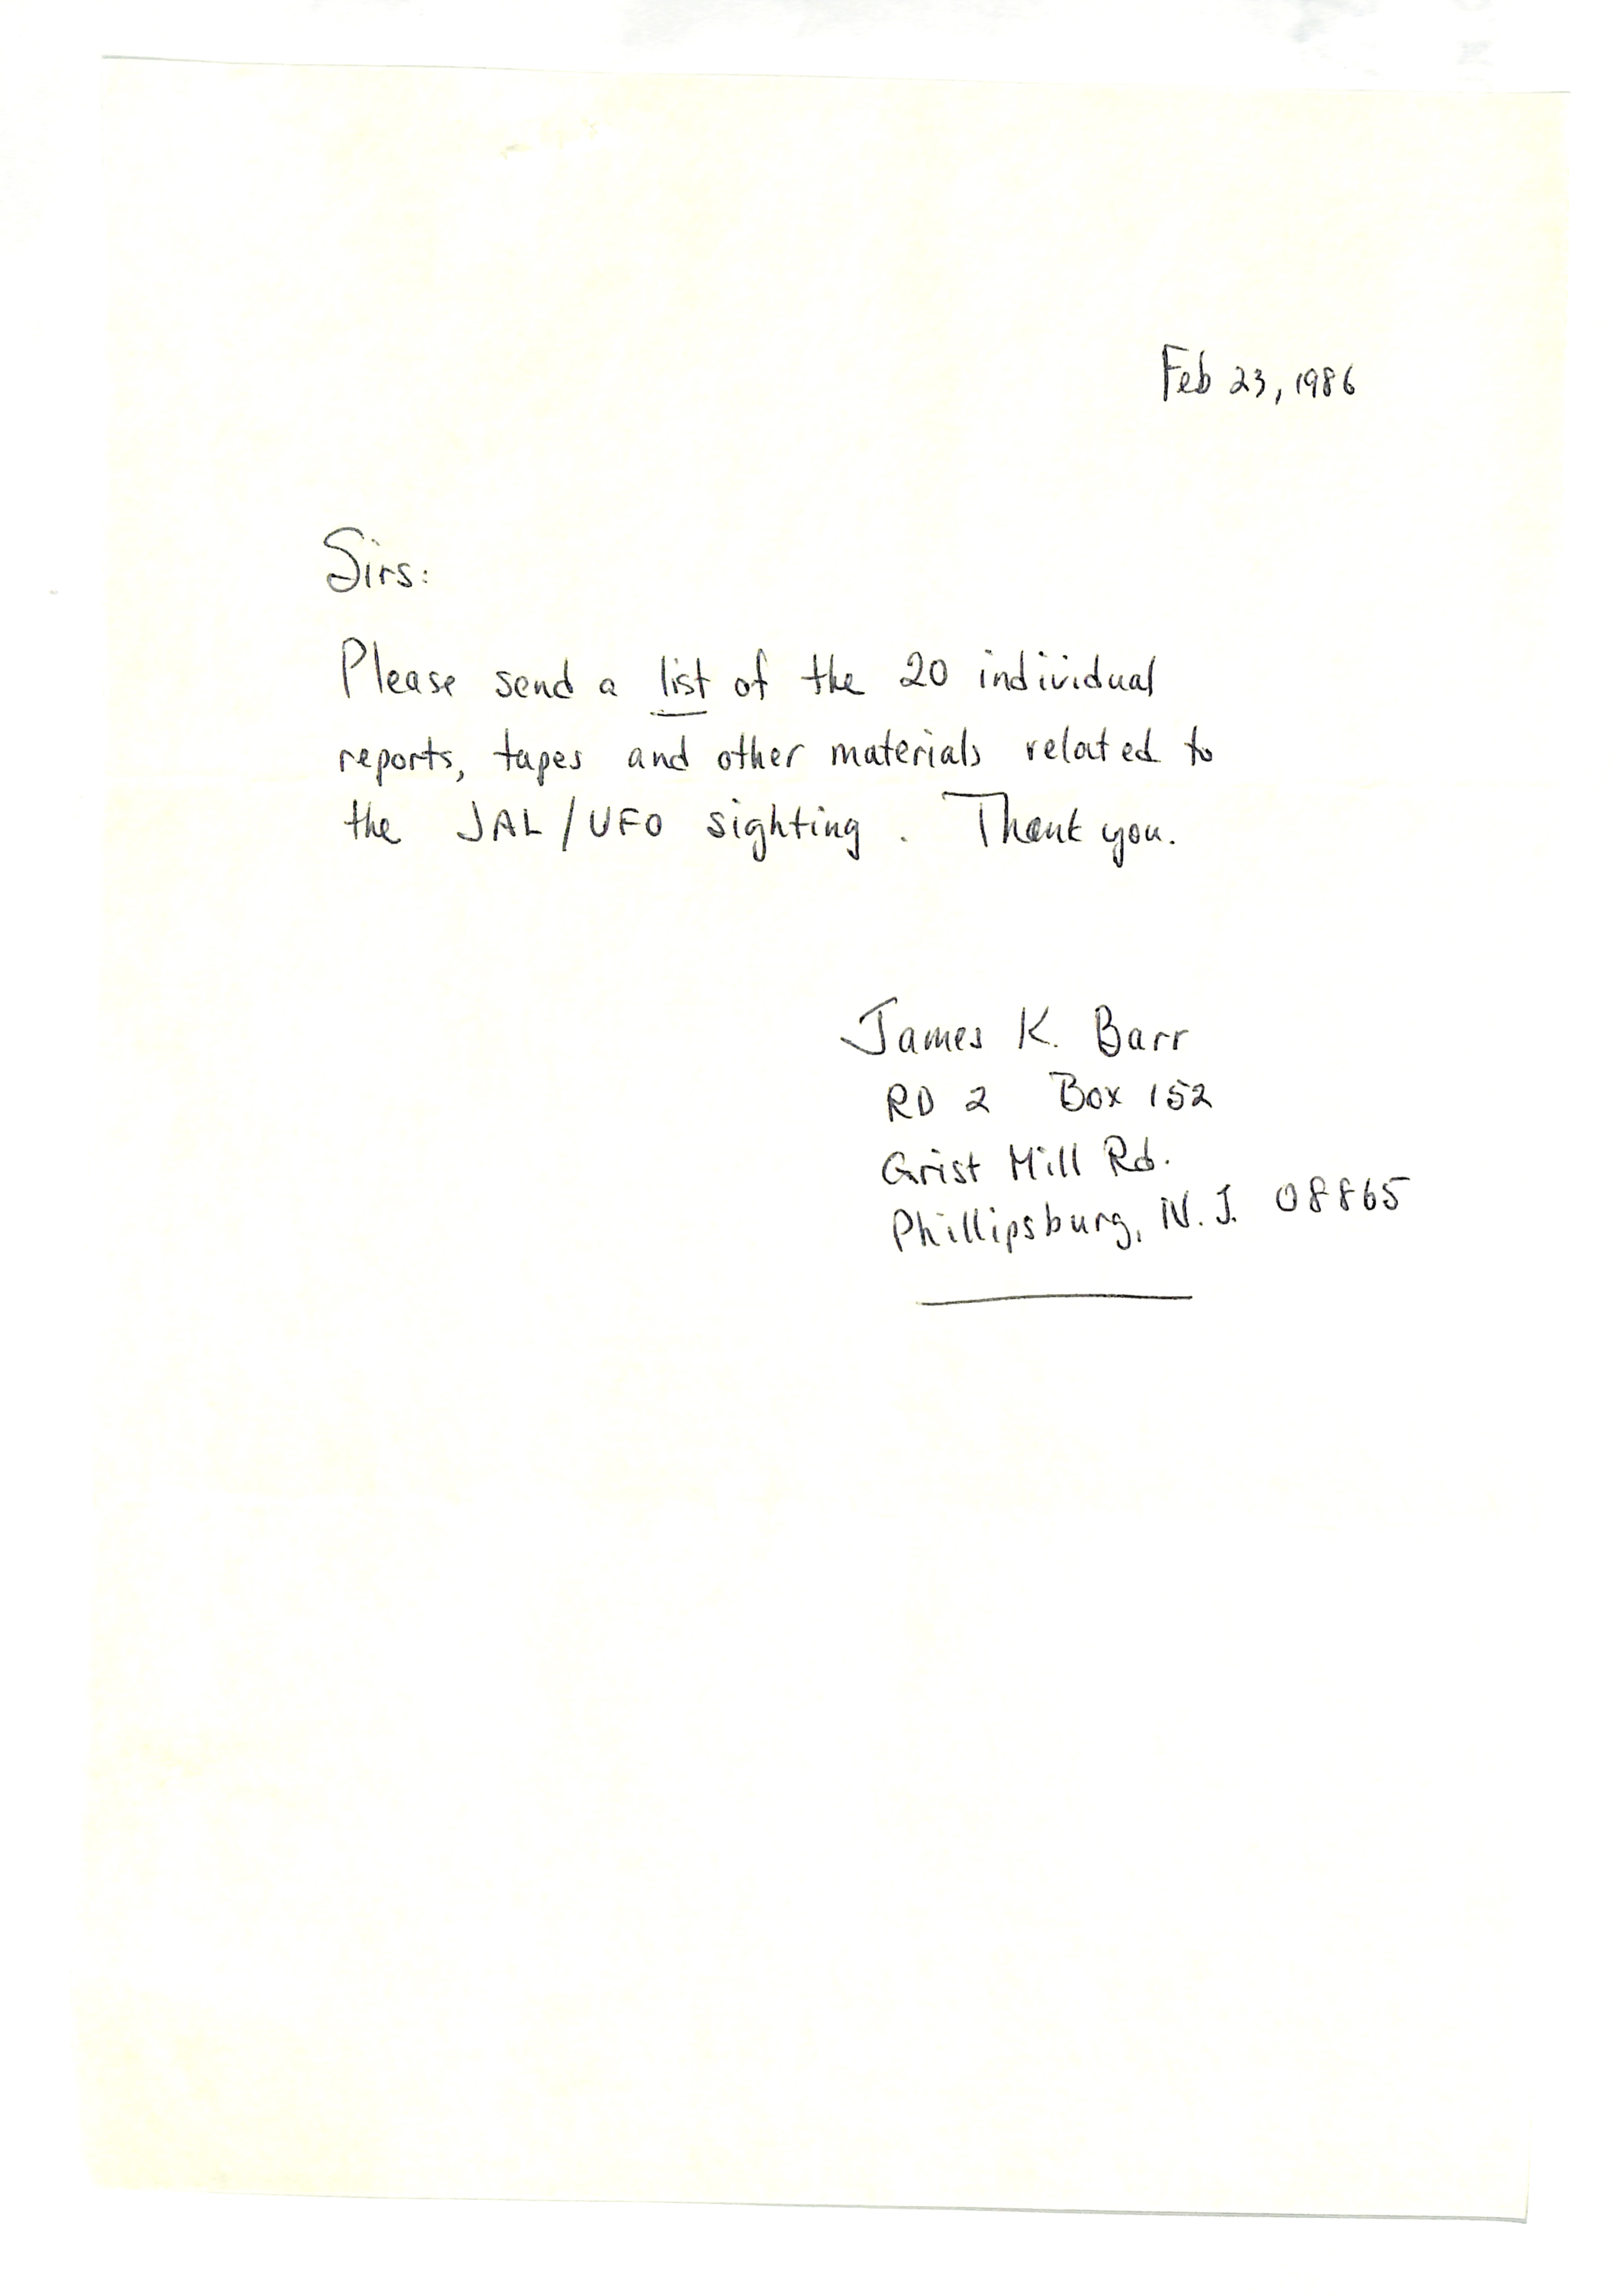 Feb 23, 1986
Sirs:
Please send a list of the 20 individual
reports, tapes and other materials related to
the JAL/UFO sighting. Thank you.
James K. Barr
RD 2 Box 152
Grist Mill Rd.
Phillipsburg, N.J. 08865